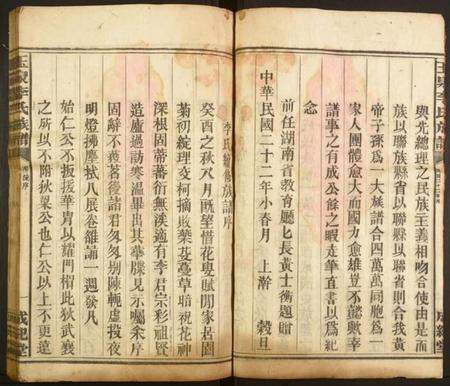 與先總理之民族主義相吻合使由是而
族以聯族縣省以聯縣以聯者則合我黃
帝子孫爲一大族譜合四萬萬同胞爲一
家人團體愈大而國力愈雄豈不懿歟幸
譜事之有成公餘之暇走筆直書以爲紀
念
前任湖南省教育廳長黃士衡題贈
中華民國二十二年小春月 上澣 穀旦
成紀堂
李氏續修族譜序
癸酉之秋八月既望惜花叟賦閒家居園
菊初綻理交柯摘敗葉芟蔓草暗祝花神
深根固蒂蕃衍無涘適有李君宗彩祖賢
造廬過訪寒溫畢出其華牒見示囑爲序
固辭不獲茗後諸君匆匆別陳輒虛投夜
明燈拂塵拭几展卷雒誦一週發凡
始仁公不扳援華冑以耀門楣此狄武襄
之所以不附狄梁公也仁公以上不更遠
成紀堂